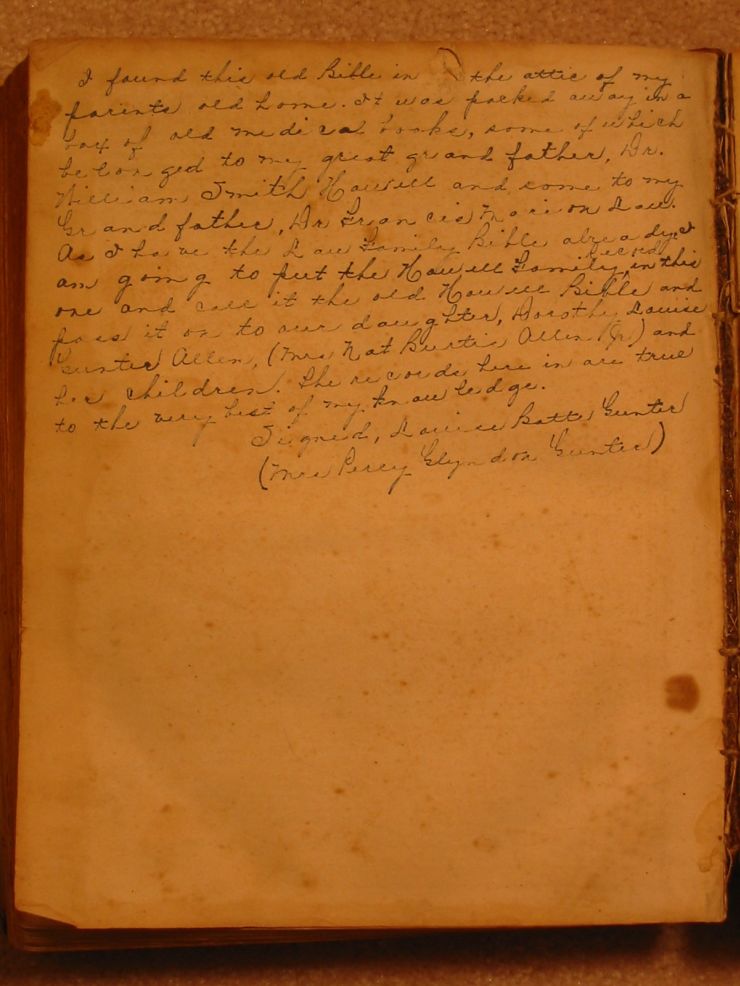 I found this old Bible in the attic of my
parents old home. It was packed away in a
box of old medical books, some of which
belonged to my great grand father, Dr.
William Smith Howell and some to my
Grand father, Dr Francis Marion Law.
As I have the Law Family Bible already, I
am going to put the Howell Family Record in this
one and call it the old Howell Bible and
pass it on to our daughter, Dorothy Louise
Gunter Allen, (Mrs Nat Burtis Allen Jr.) and
her children. The records here in are true
to the very best of my knowledge.
Signed, Louise Batte Gunter
(Mrs Percy Glyndon Gunter)